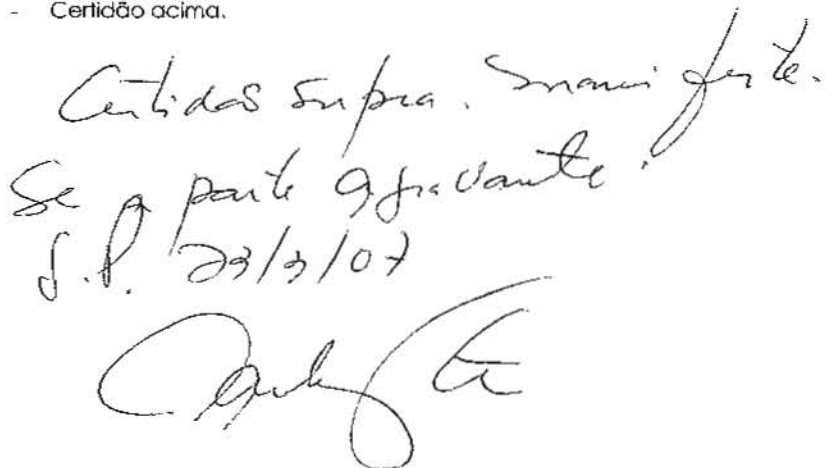 - Certidão acima.
Certidão supra. Manifeste-
se a parte agravante.
S.P. 23/3/07